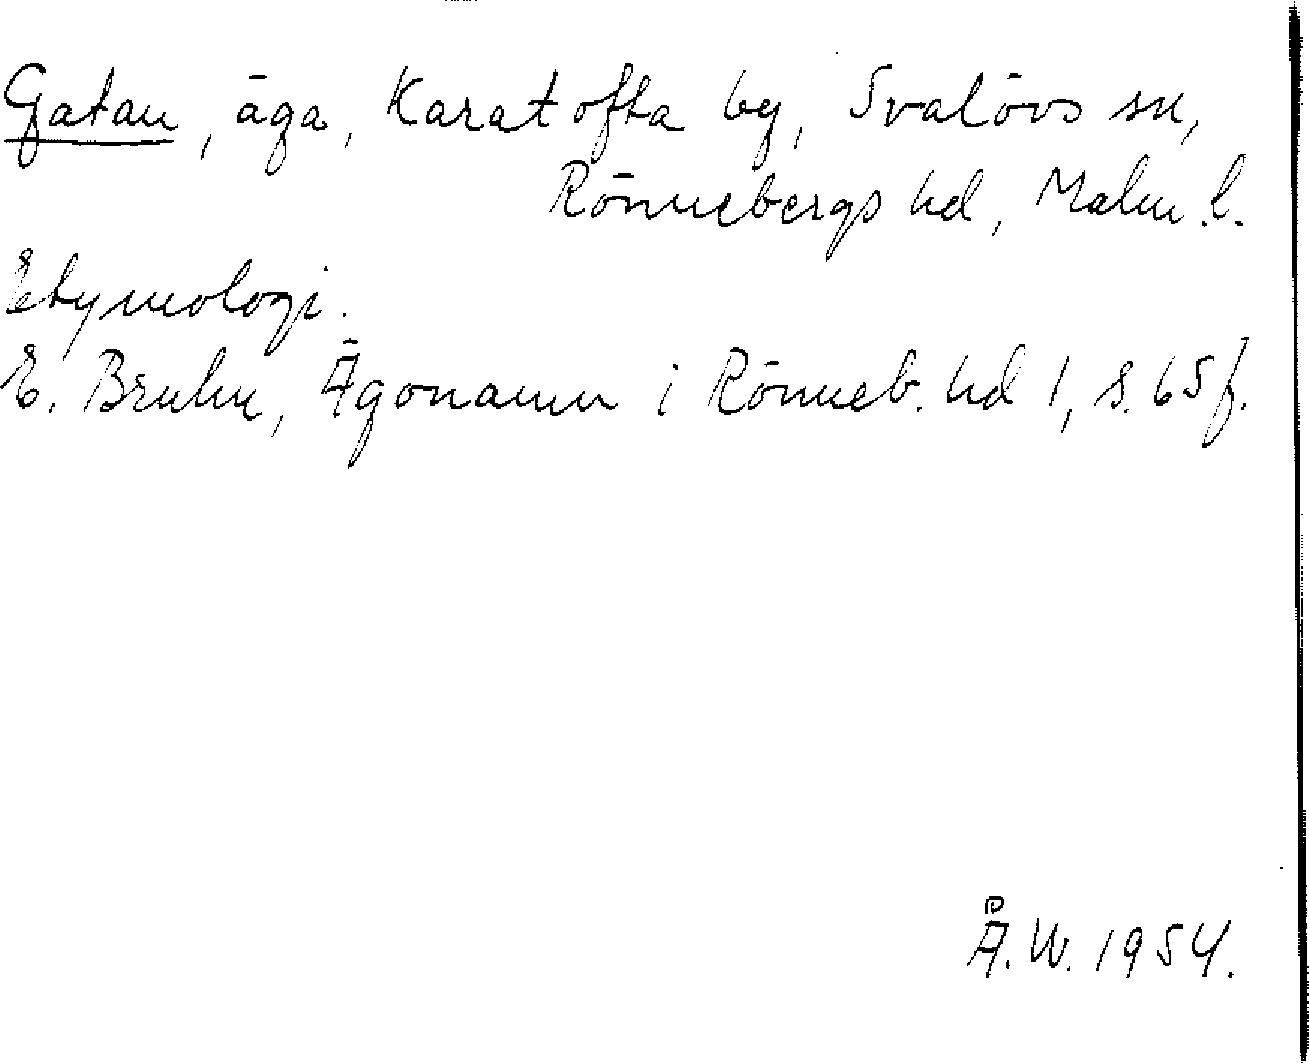 Gatan, äga, Karatofta by, Svalövs sn,
Rönnebergs hd, Malm. l.
Etymologi.
E. Bruhn, Ägonamn i Rönneb. hd 1, s. 65 f.
Å. W. 1954.